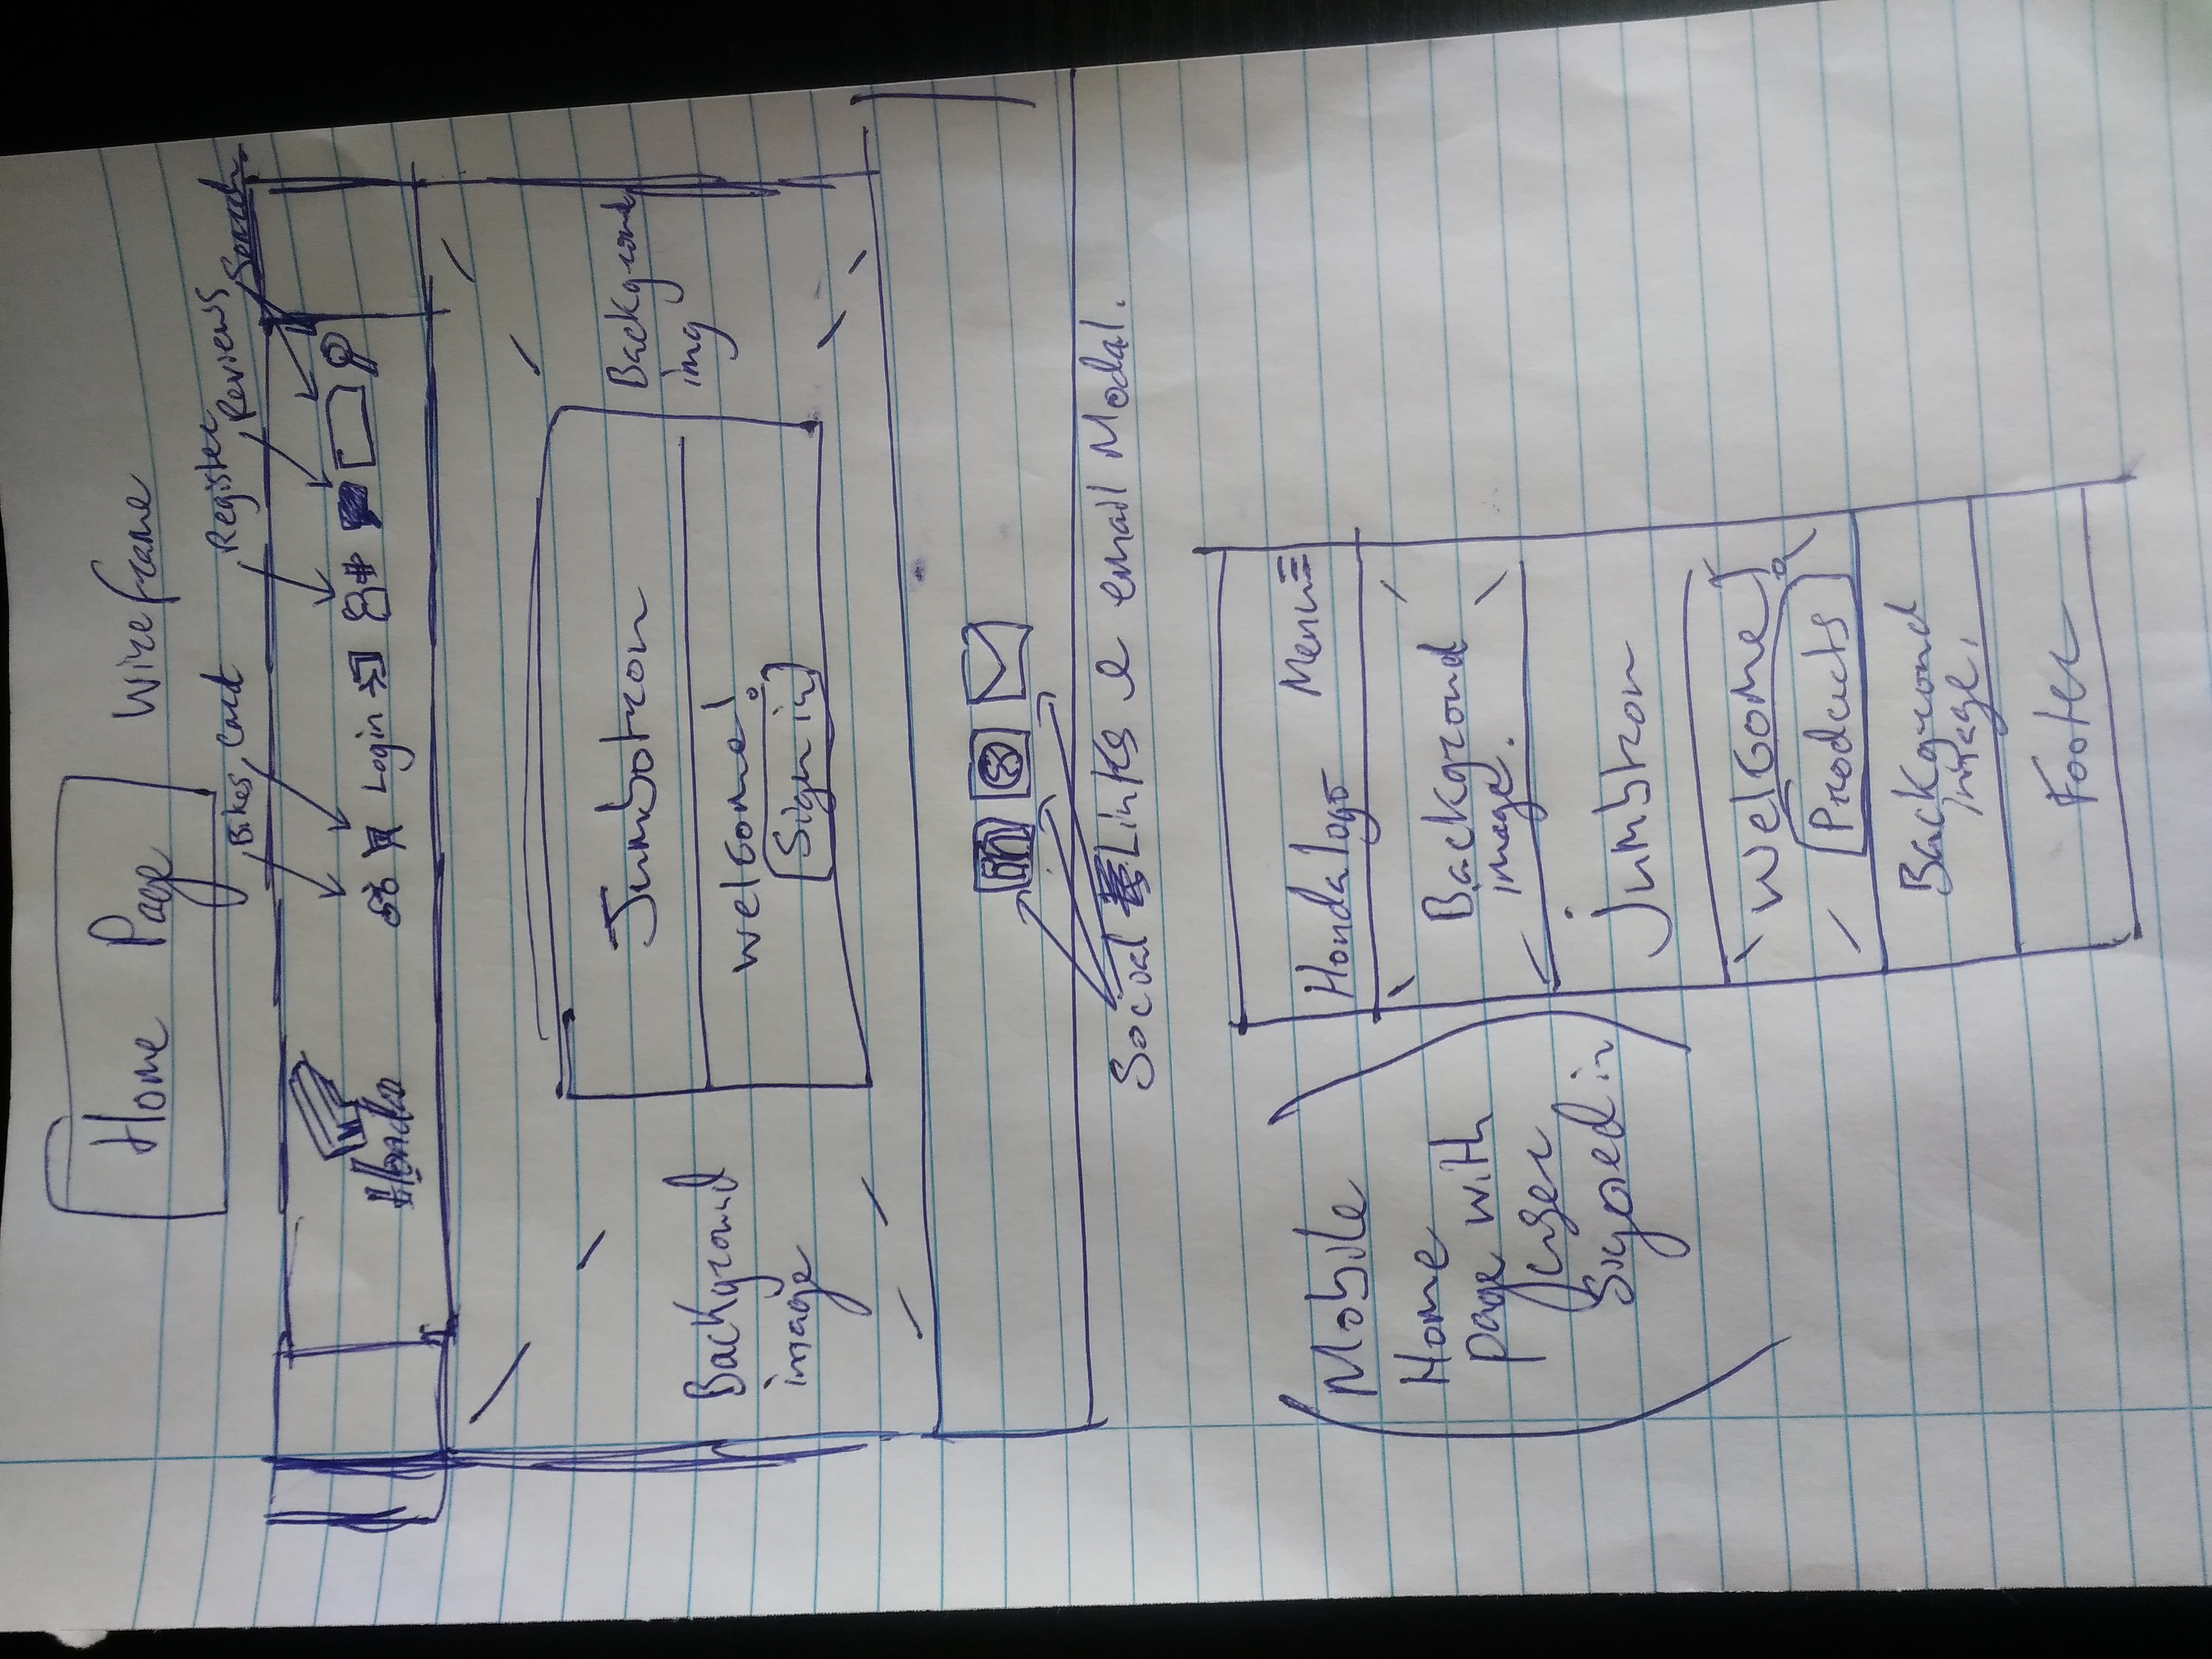 Home Page Wireframe
Bikes, Cart, Register, Reviews, Search.
Honda
Login
Jumbotron
Background
img
welcome!
Sign in
Background
image
in
Social Links & email Modal.
Mobile
Home
page with
user
Signed in
Honda logo Menu
Background
image.
Jumbtron
Welcome
Products
Background
image,
Footer